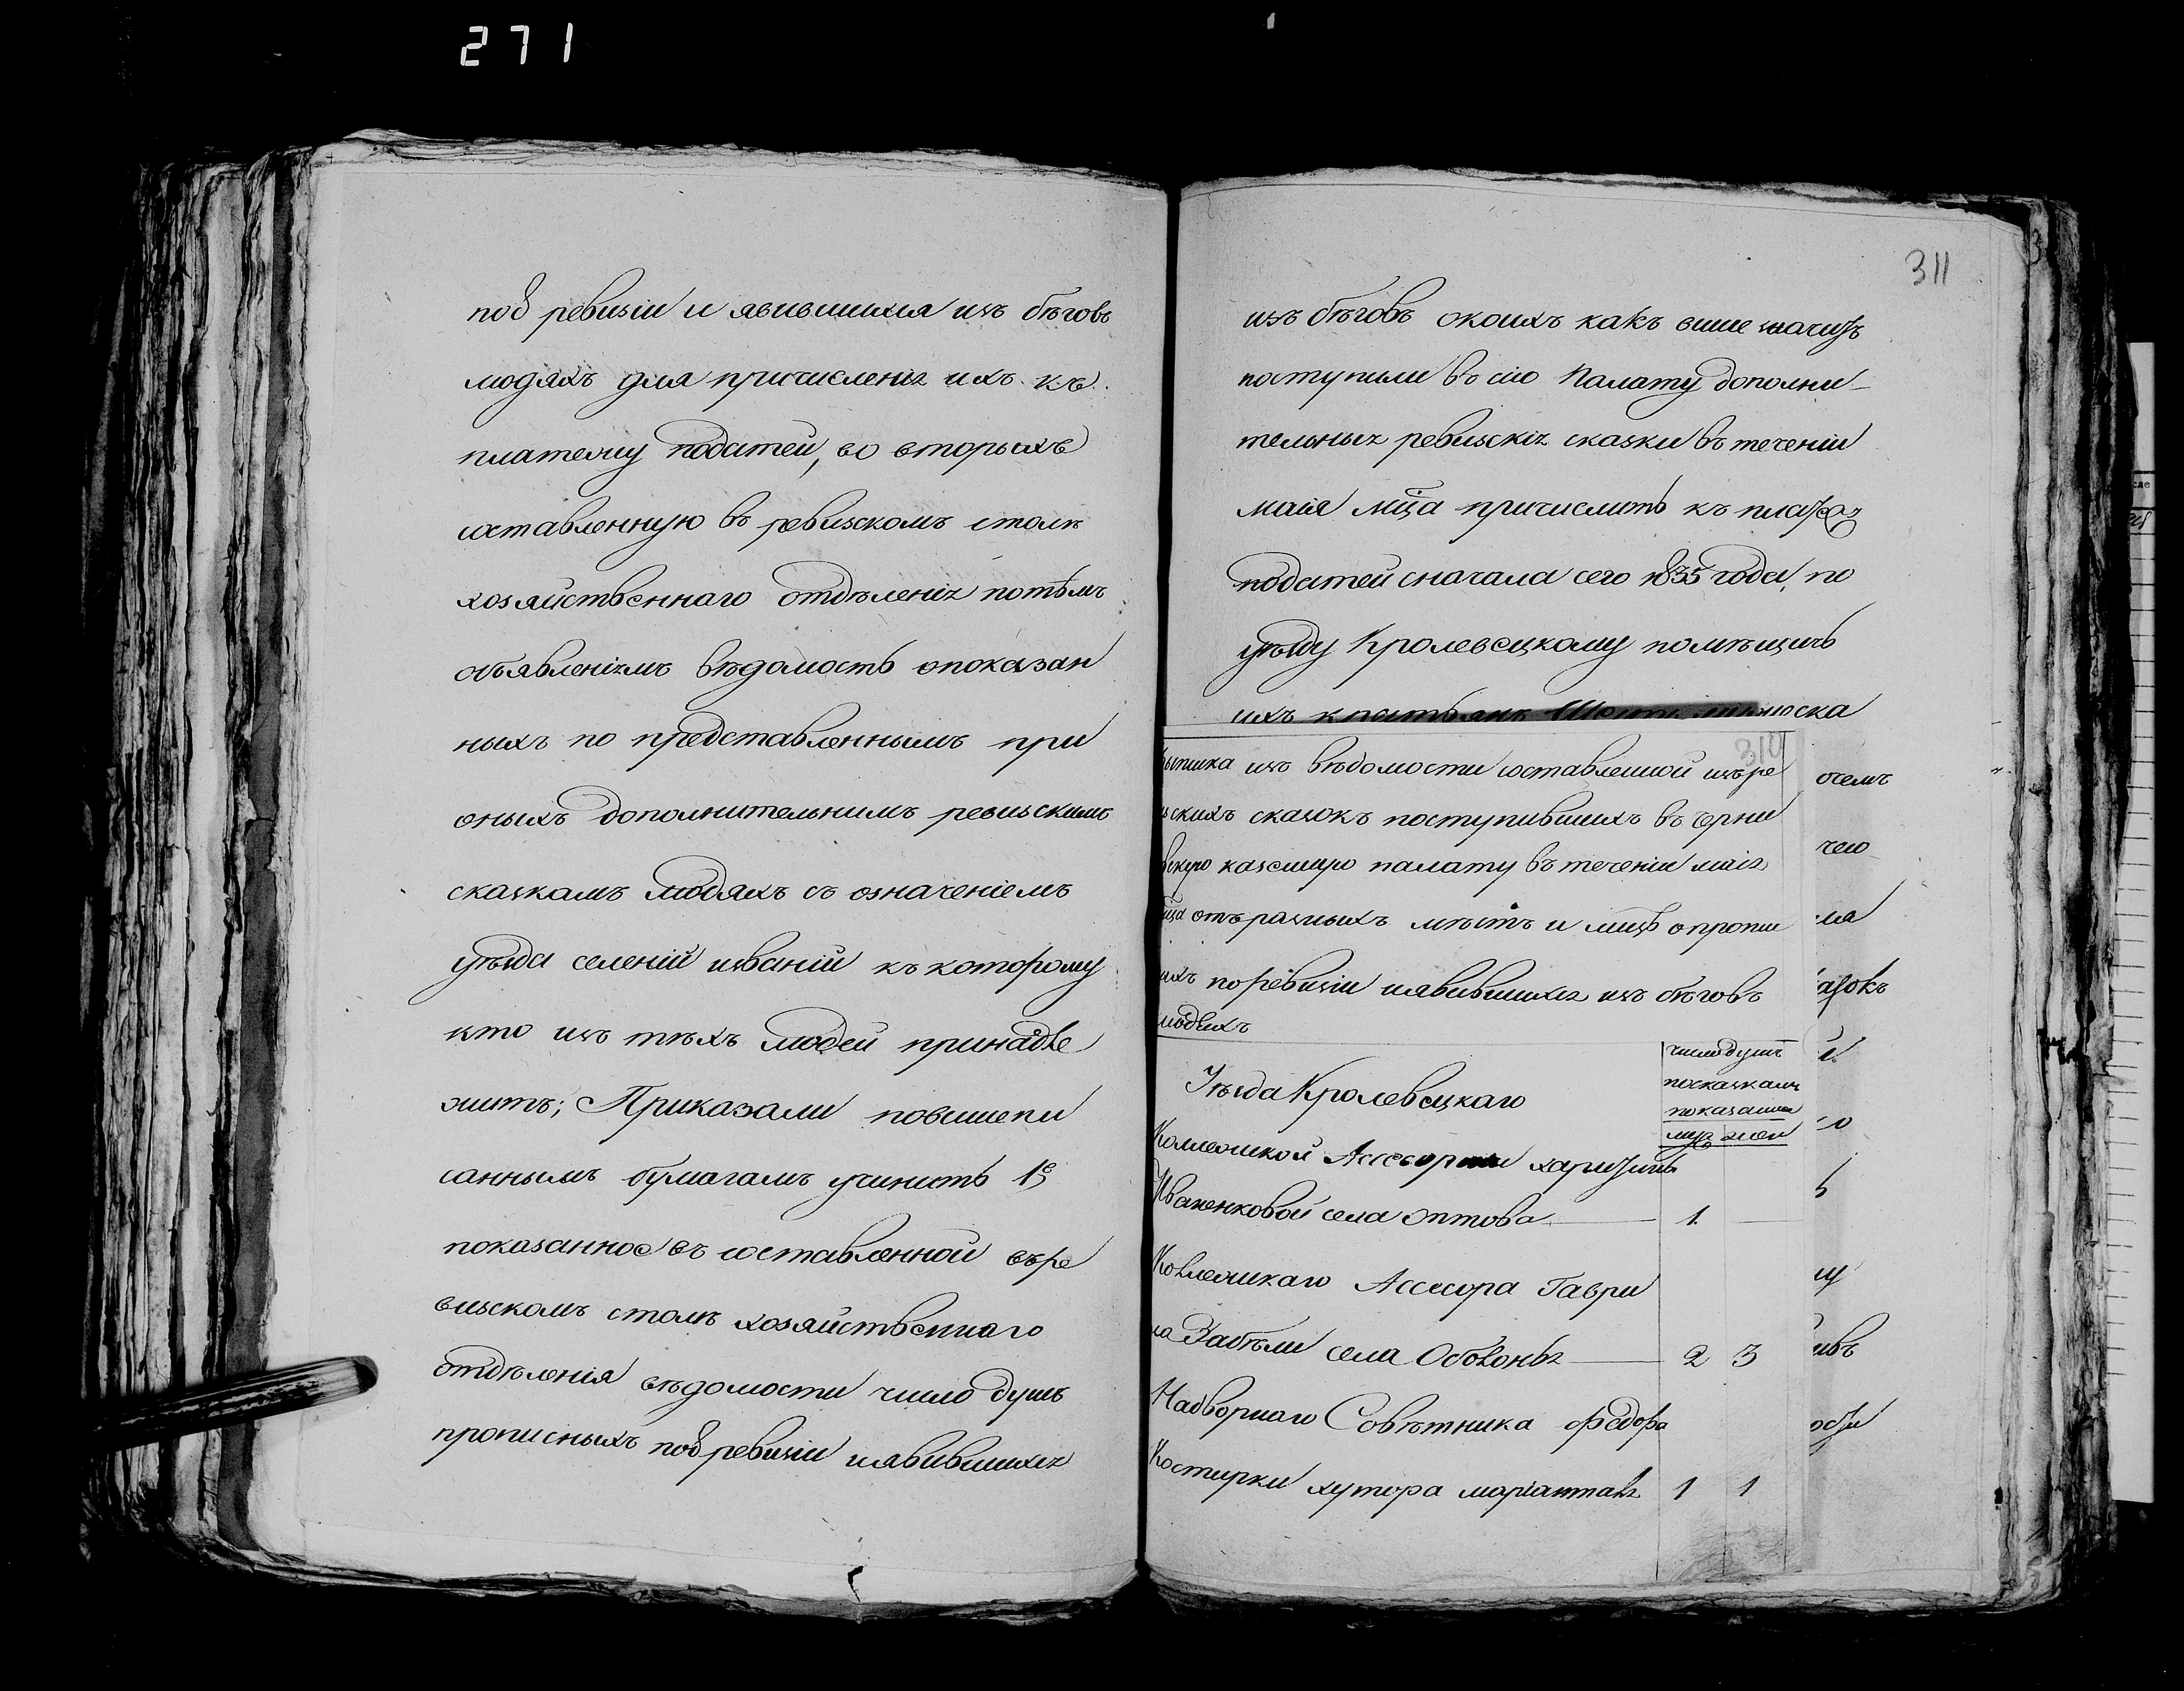 271
под ревизіи и явившихся изъ бѣговъ
людяхъ для причисленія ихъ къ
платежу податей, во вторыхъ
составленную въ ревизскомъ столѣ
хозяйственнаго отдѣленія потѣмъ
объявленіямъ вѣдомость опоказан
ныхъ по представленнымъ при
оныхъ дополнительнимъ ревизскимъ
сказкамъ людяхъ съ означеніемъ
уѣзда селеній изваній къ которому
кто изъ тѣхъ людей принадле
житъ; Приказали повишепи
саннымъ бумагамъ учинить 1е
показанное въ составленной вѣре
визскомъ столѣ хозяйственнаго
отдѣленія вѣдомости число душъ
прописныхъ под ревизіи иявившихся
311
изъ бѣговъ окоихъ какъ више значитъ
поступили въ сію Палату дополни-
тельныя ревизскія сказки въ теченіи
маія мца причислить къ платежу
податей сначала сего 1835 года, по
уѣзду Кролевецкому помѣщичь
ихъ крестьянъ
310
выписка изъ вѣдомости составленной изъ ре
скихъ сказокъ поступившихъ въ черни
вскую казенную палату въ теченіи маія
мца отъ разныхъ мѣстъ и лицъ опропи
ихъ поревизіи иявившихся изъ бѣговъ
людяхъ
Уѣзда Кролевецкаго
число душъ
посказкамъ
показанное
муж жен
Коллежской Ассесорши
Иваненковой села Оптова — 1. —
Коллежскаго Ассесора Гаври
ла Забѣли села Оболонья — 2 3
Надворнаго Совѣтника Федора
Костирки хутора 1 1
очемъ
чею
ма
азокъ